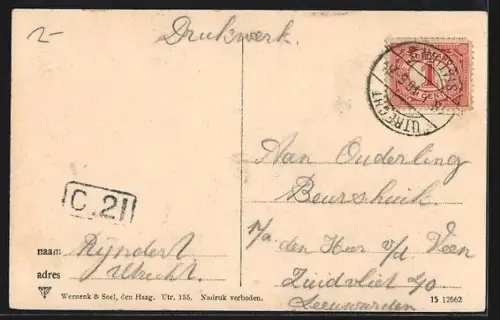 2-
Drukwerk.
1
UTRECHT
Aan Ouderling
Beurshuik.
p/a den Heer v/d Veen
Zuidvliet 40
Leeuwarden
C.21
naam Rijndert
adres Utrecht.
Weenenk & Snel, den Haag. Utr. 155. Nadruk verboden.
15 12662